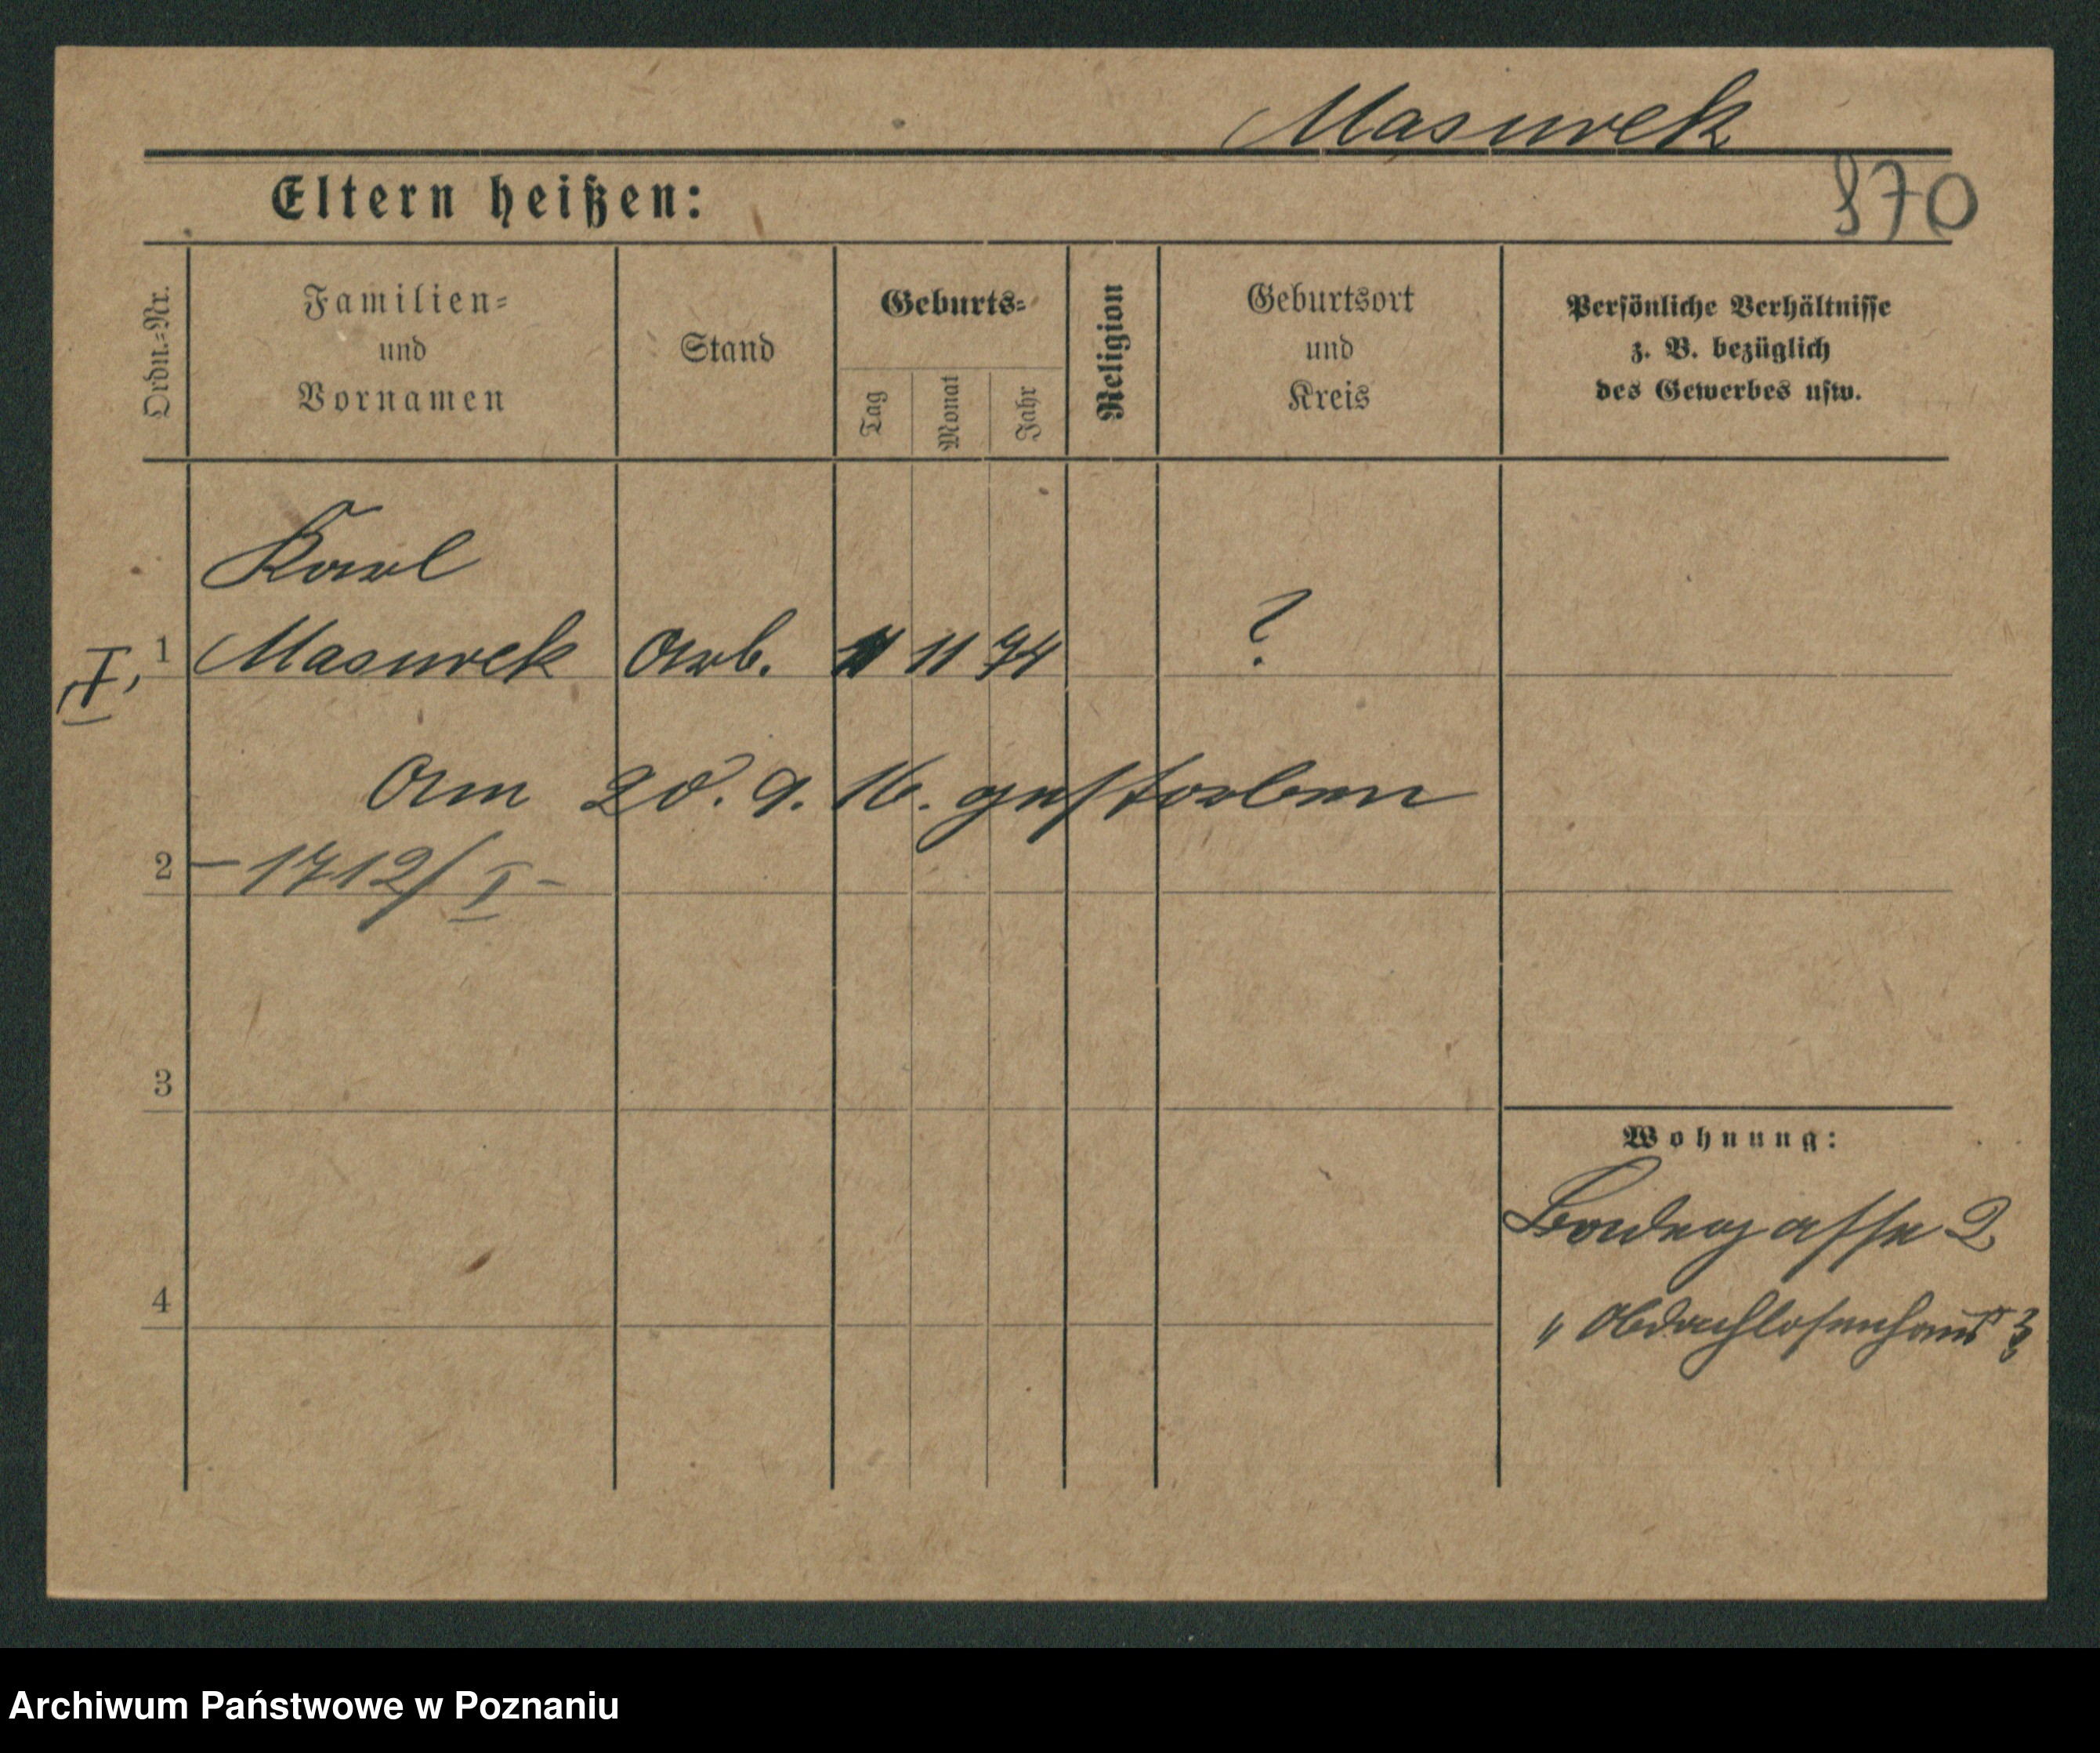 Masurek
Eltern heißen:
870
Ordn.-Nr.
Familien-
und
Vornamen
Stand
Geburts-
Tag
Monat
Jahr
Religion
Geburtsort
und
Kreis
Persönliche Verhältnisse
z. B. bezüglich
des Gewerbes usw.
Karl
1 Masurek Arb. 11 74 ?
I,
Am 20. 9. 16. gestorben
2 - 1712/I -
3
Wohnung:
2
4
"Obdachlosenhaus"
Archiwum Państwowe w Poznaniu